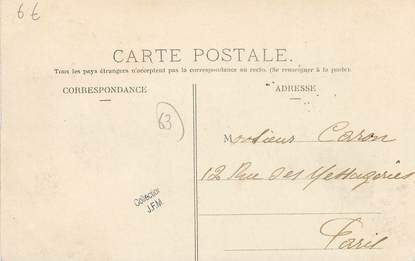 6€
CARTE POSTALE.
Tous les pays étrangers n'acceptent pas la correspondance au recto. (Se renseigner à la poste).
CORRESPONDANCE
ADRESSE
63
Monsieur Caron
12 Rue des Messageries
Paris
Collection
J.F.M.